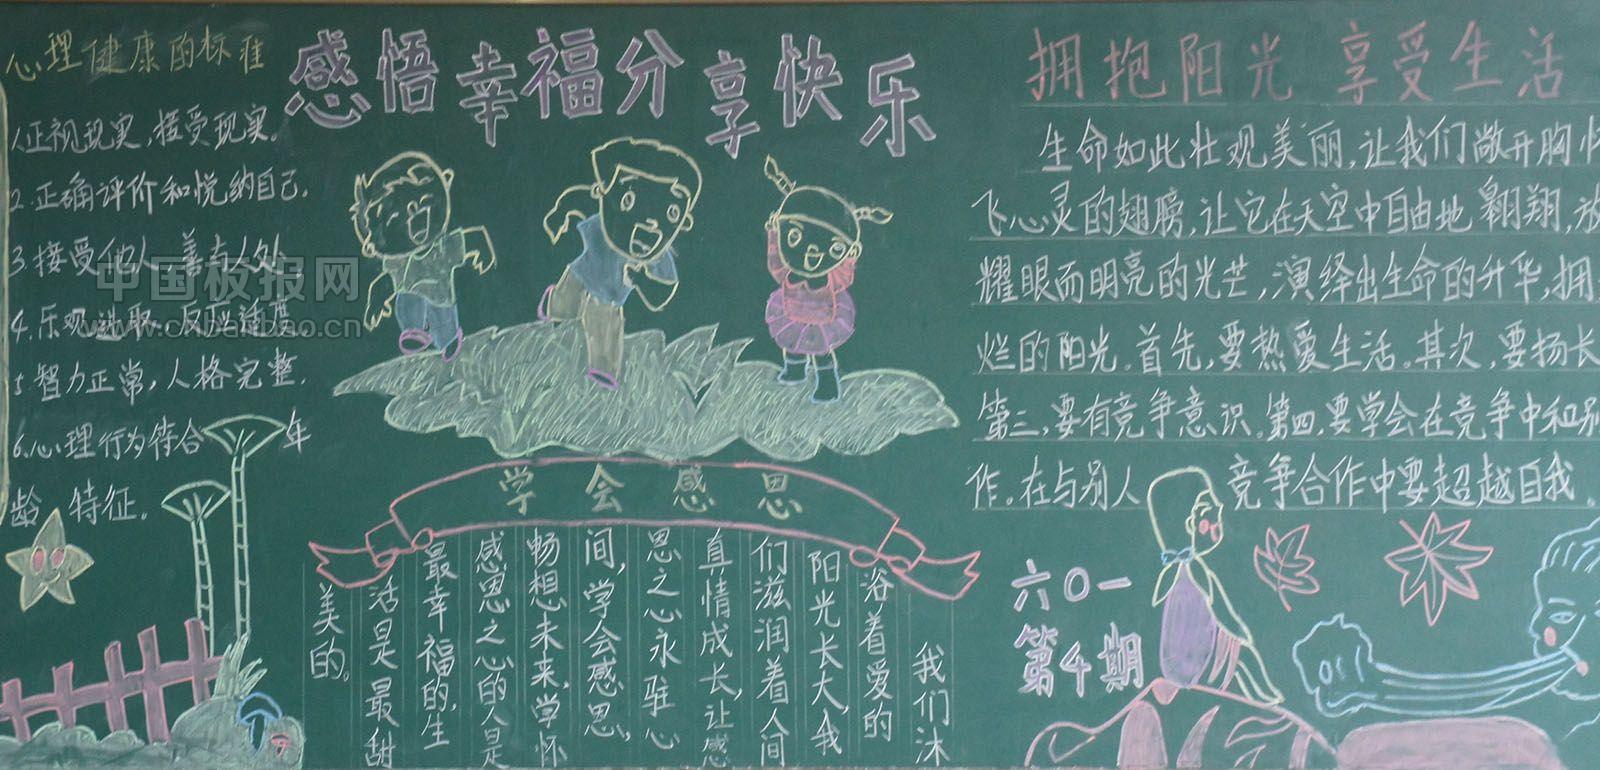 感悟幸福分享快乐
心理健康的标准
1.正视现实,接受现实.
2.正确评价和悦纳自己.
3.接受他人,善与人处.
4.乐观进取.反应适度
5.智力正常,人格完整.
6.心理行为符合年
龄特征.
中国板报网
www.cnbanbao.cn
学会感恩
我们沐
浴着爱的
阳光长大,我
们滋润着人间
真情成长,让感
恩之心永驻心
间,学会感恩,
畅想未来,学怀
感恩之心的人是
最幸福的,生
活是最甜
美的。
拥抱阳光 享受生活
生命如此壮观美丽,让我们敞开胸
飞心灵的翅膀,让它在天空中自由地翱翔,放
耀眼而明亮的光芒,演绎出生命的升华,拥
烂的阳光。首先,要热爱生活。其次,要扬长
第三,要有竞争意识。第四,要学会在竞争中和别
作。在与别人竞争合作中要超越自我。
六0一
第4期